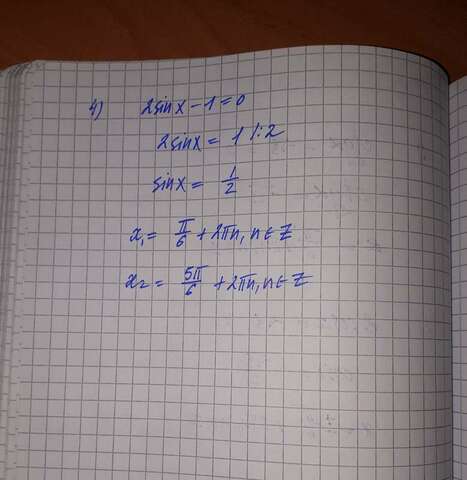 4) 2sinx - 1 = 0
2sinx = 1 /:2
sinx = 1/2
x₁ = π/6 + 2πn, n ∈ Z
x₂ = 5π/6 + 2πn, n ∈ Z